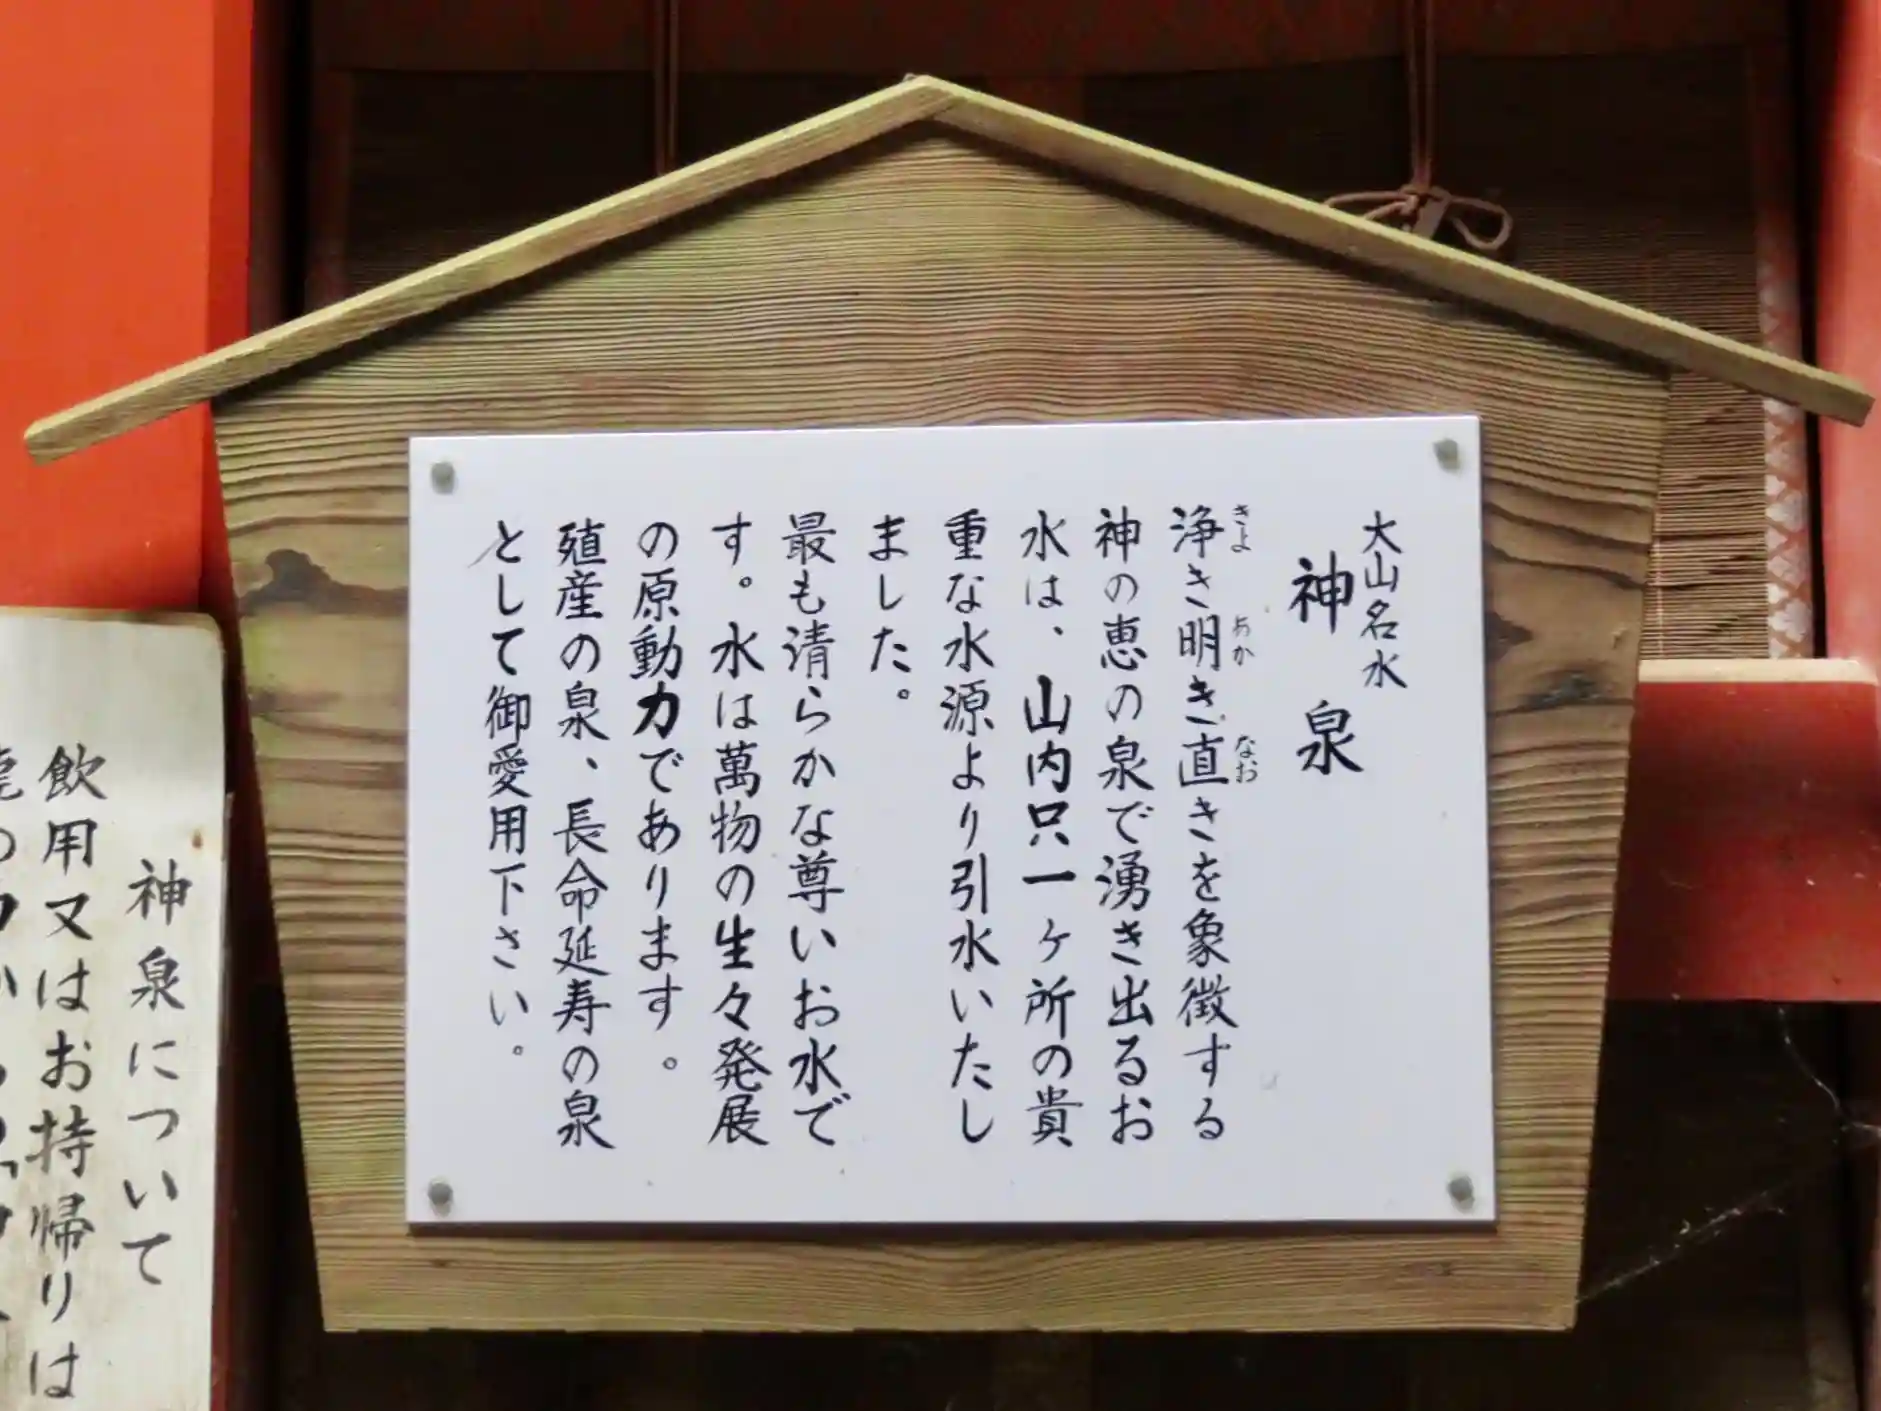 大山名水
神泉
浄き明き直きを象徴する
きよ あか なお
神の恵の泉で湧き出るお
水は、山内只一ヶ所の貴
重な水源より引水いたし
ました。
最も清らかな尊いお水で
す。水は萬物の生々発展
の原動力であります。
殖産の泉、長命延寿の泉
として御愛用下さい。
神泉について
飲用又はお持帰りは